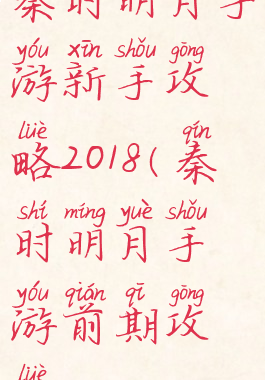 秦时明月手
yóu xīn shǒu gōng
游新手攻
lüè qín
略2018(秦
shí míng yuè shǒu
时明月手
yóu qián qī gōng
游前期攻
lüè